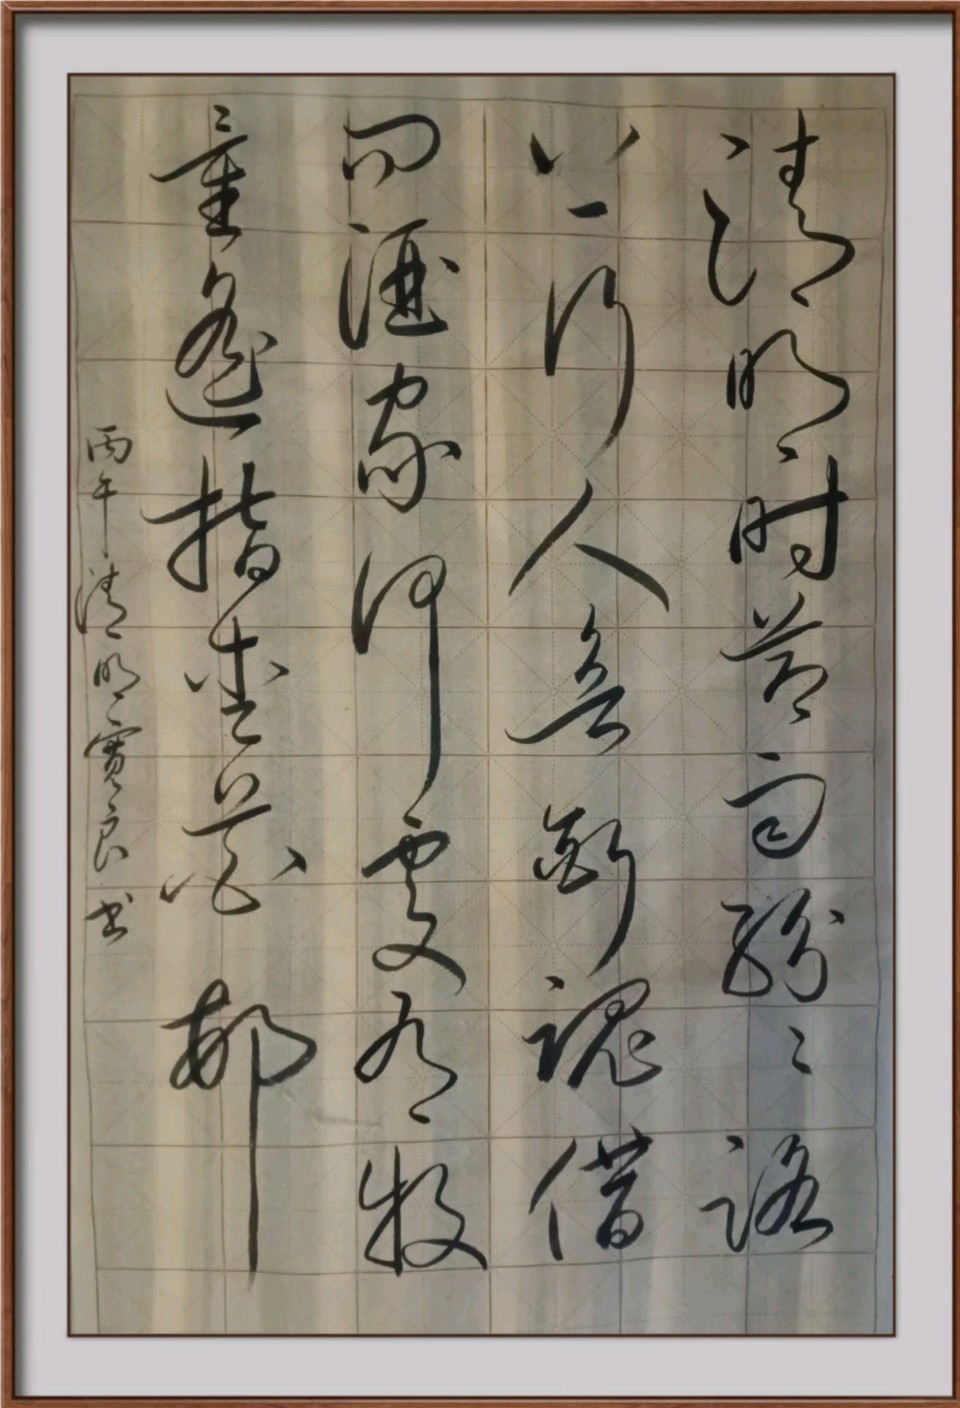 清明时节雨紛々路
上行人欲斷魂借
问酒家何處有牧
童遥指杏花邨
丙午清明實良书